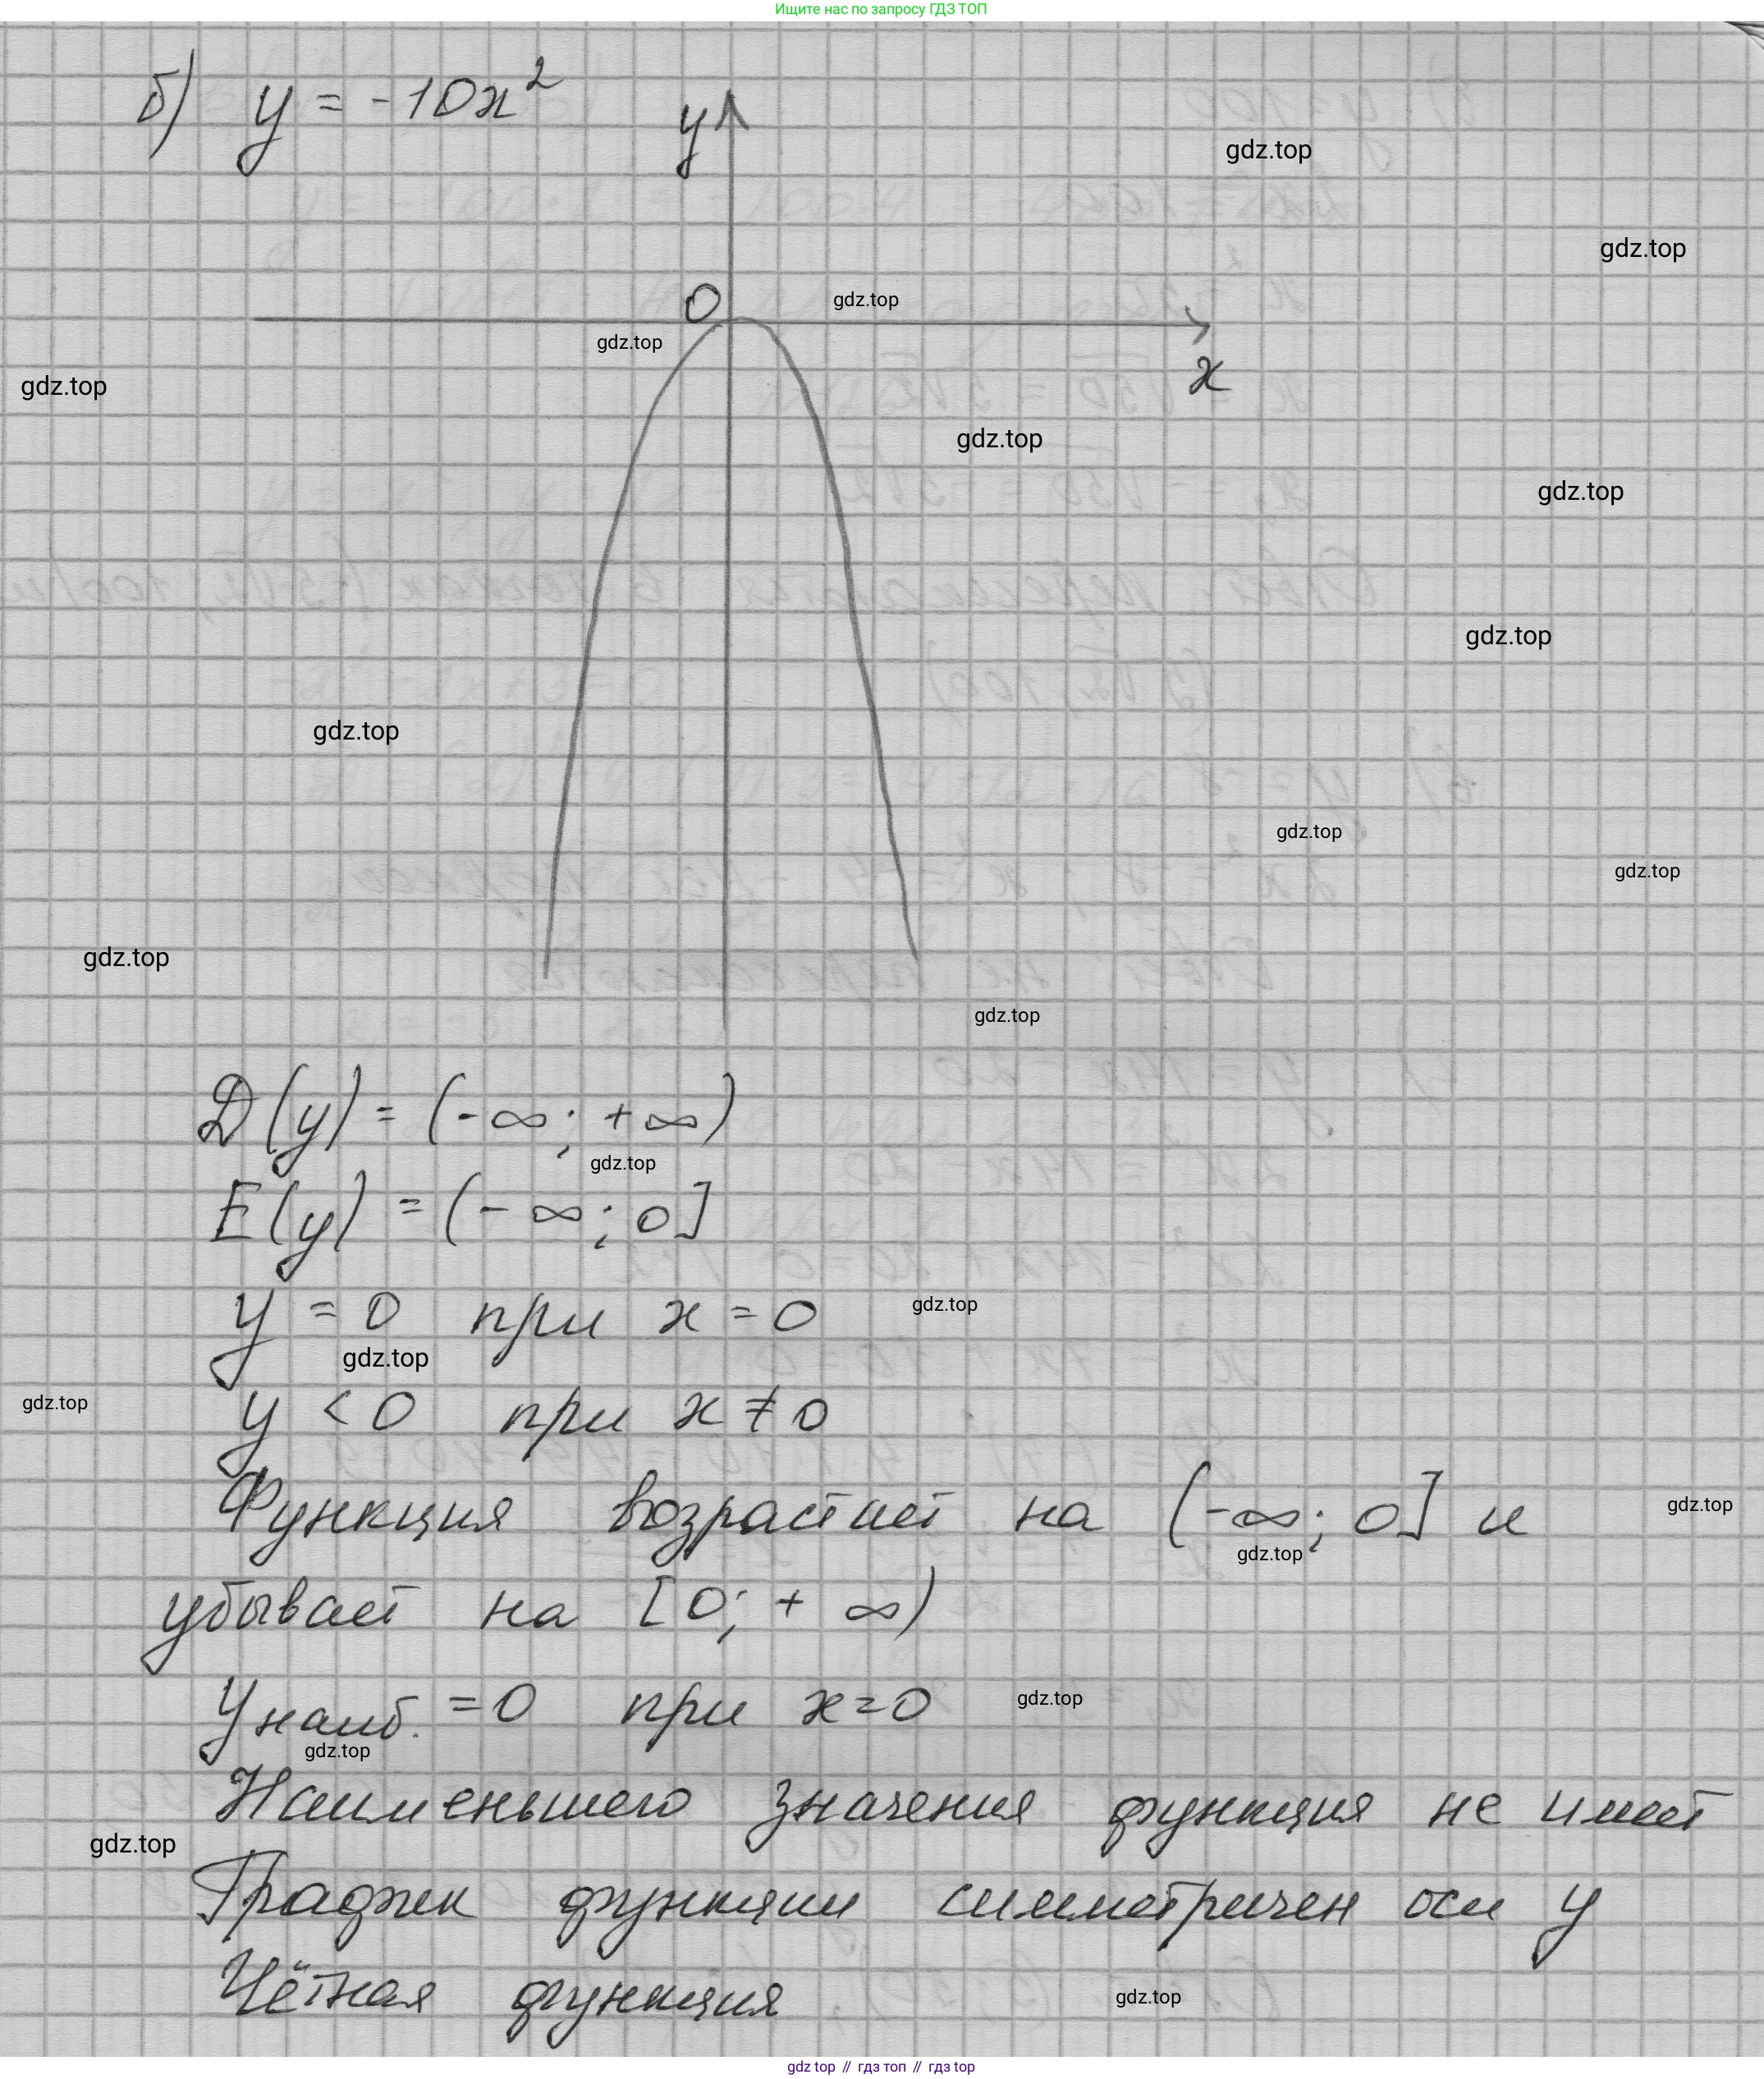 Ищите нас по запросу ГДЗ ТОП
б) y = -10x²
y
gdz.top
gdz.top
0
gdz.top
gdz.top
x
gdz.top
gdz.top
gdz.top
gdz.top
gdz.top
gdz.top
gdz.top
gdz.top
gdz.top
D(y) = (-∞; +∞)
gdz.top
E(y) = (-∞; 0]
y = 0 при x = 0
gdz.top
gdz.top
y < 0 при x ≠ 0
gdz.top
Функция возрастает на (-∞; 0] и
gdz.top
gdz.top
убывает на [0; +∞)
y наиб. = 0 при x = 0
gdz.top
gdz.top
Наименьшего значения функция не имеет
gdz.top
График функции симметричен оси y
Чётная функция
gdz.top
gdz top // гдз топ // гдз top